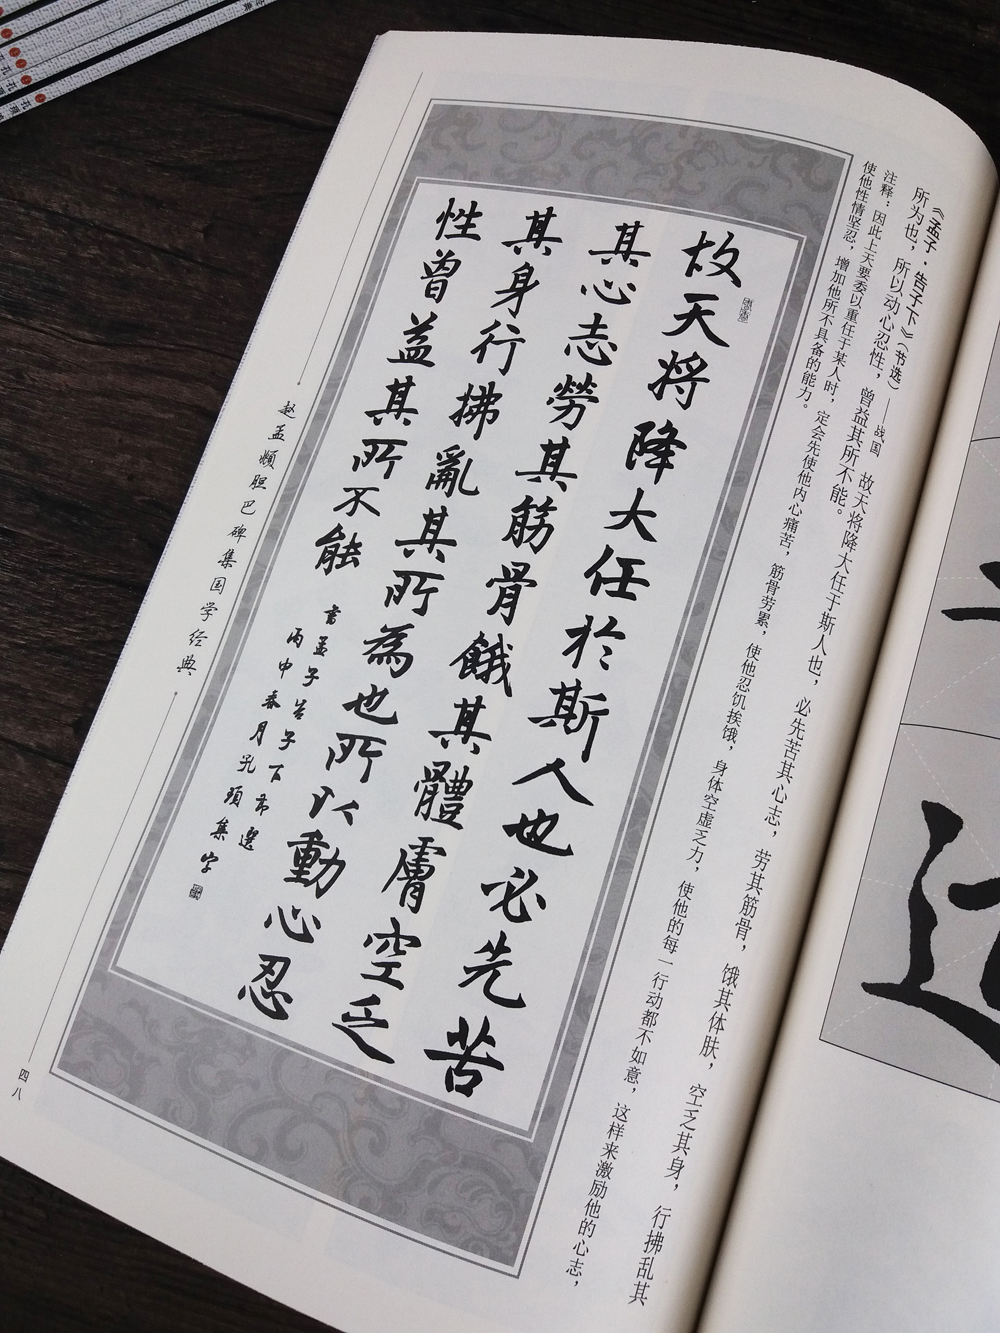 《孟子·告子下》（书选）——战国
故天将降大任于斯人也，必先苦其心志，劳其筋骨，饿其体肤，空乏其身，行拂乱其
所为也，所以动心忍性，曾益其所不能。
注释：因此上天要委以重任于某人时，定会先使他内心痛苦，筋骨劳累，使他忍饥挨饿，身体空虚乏力，使他的每一行动都不如意，这样来激励他的心志，
使他性情坚忍，增加他所不具备的能力。
故天将降大任於斯人也必先苦
其心志勞其筋骨餓其體膚空乏
其身行拂亂其所為也所以動心忍
性曾益其所不能
書孟子告子下節選
丙申春月孔頊集字
赵孟頫胆巴碑集国学经典
四八